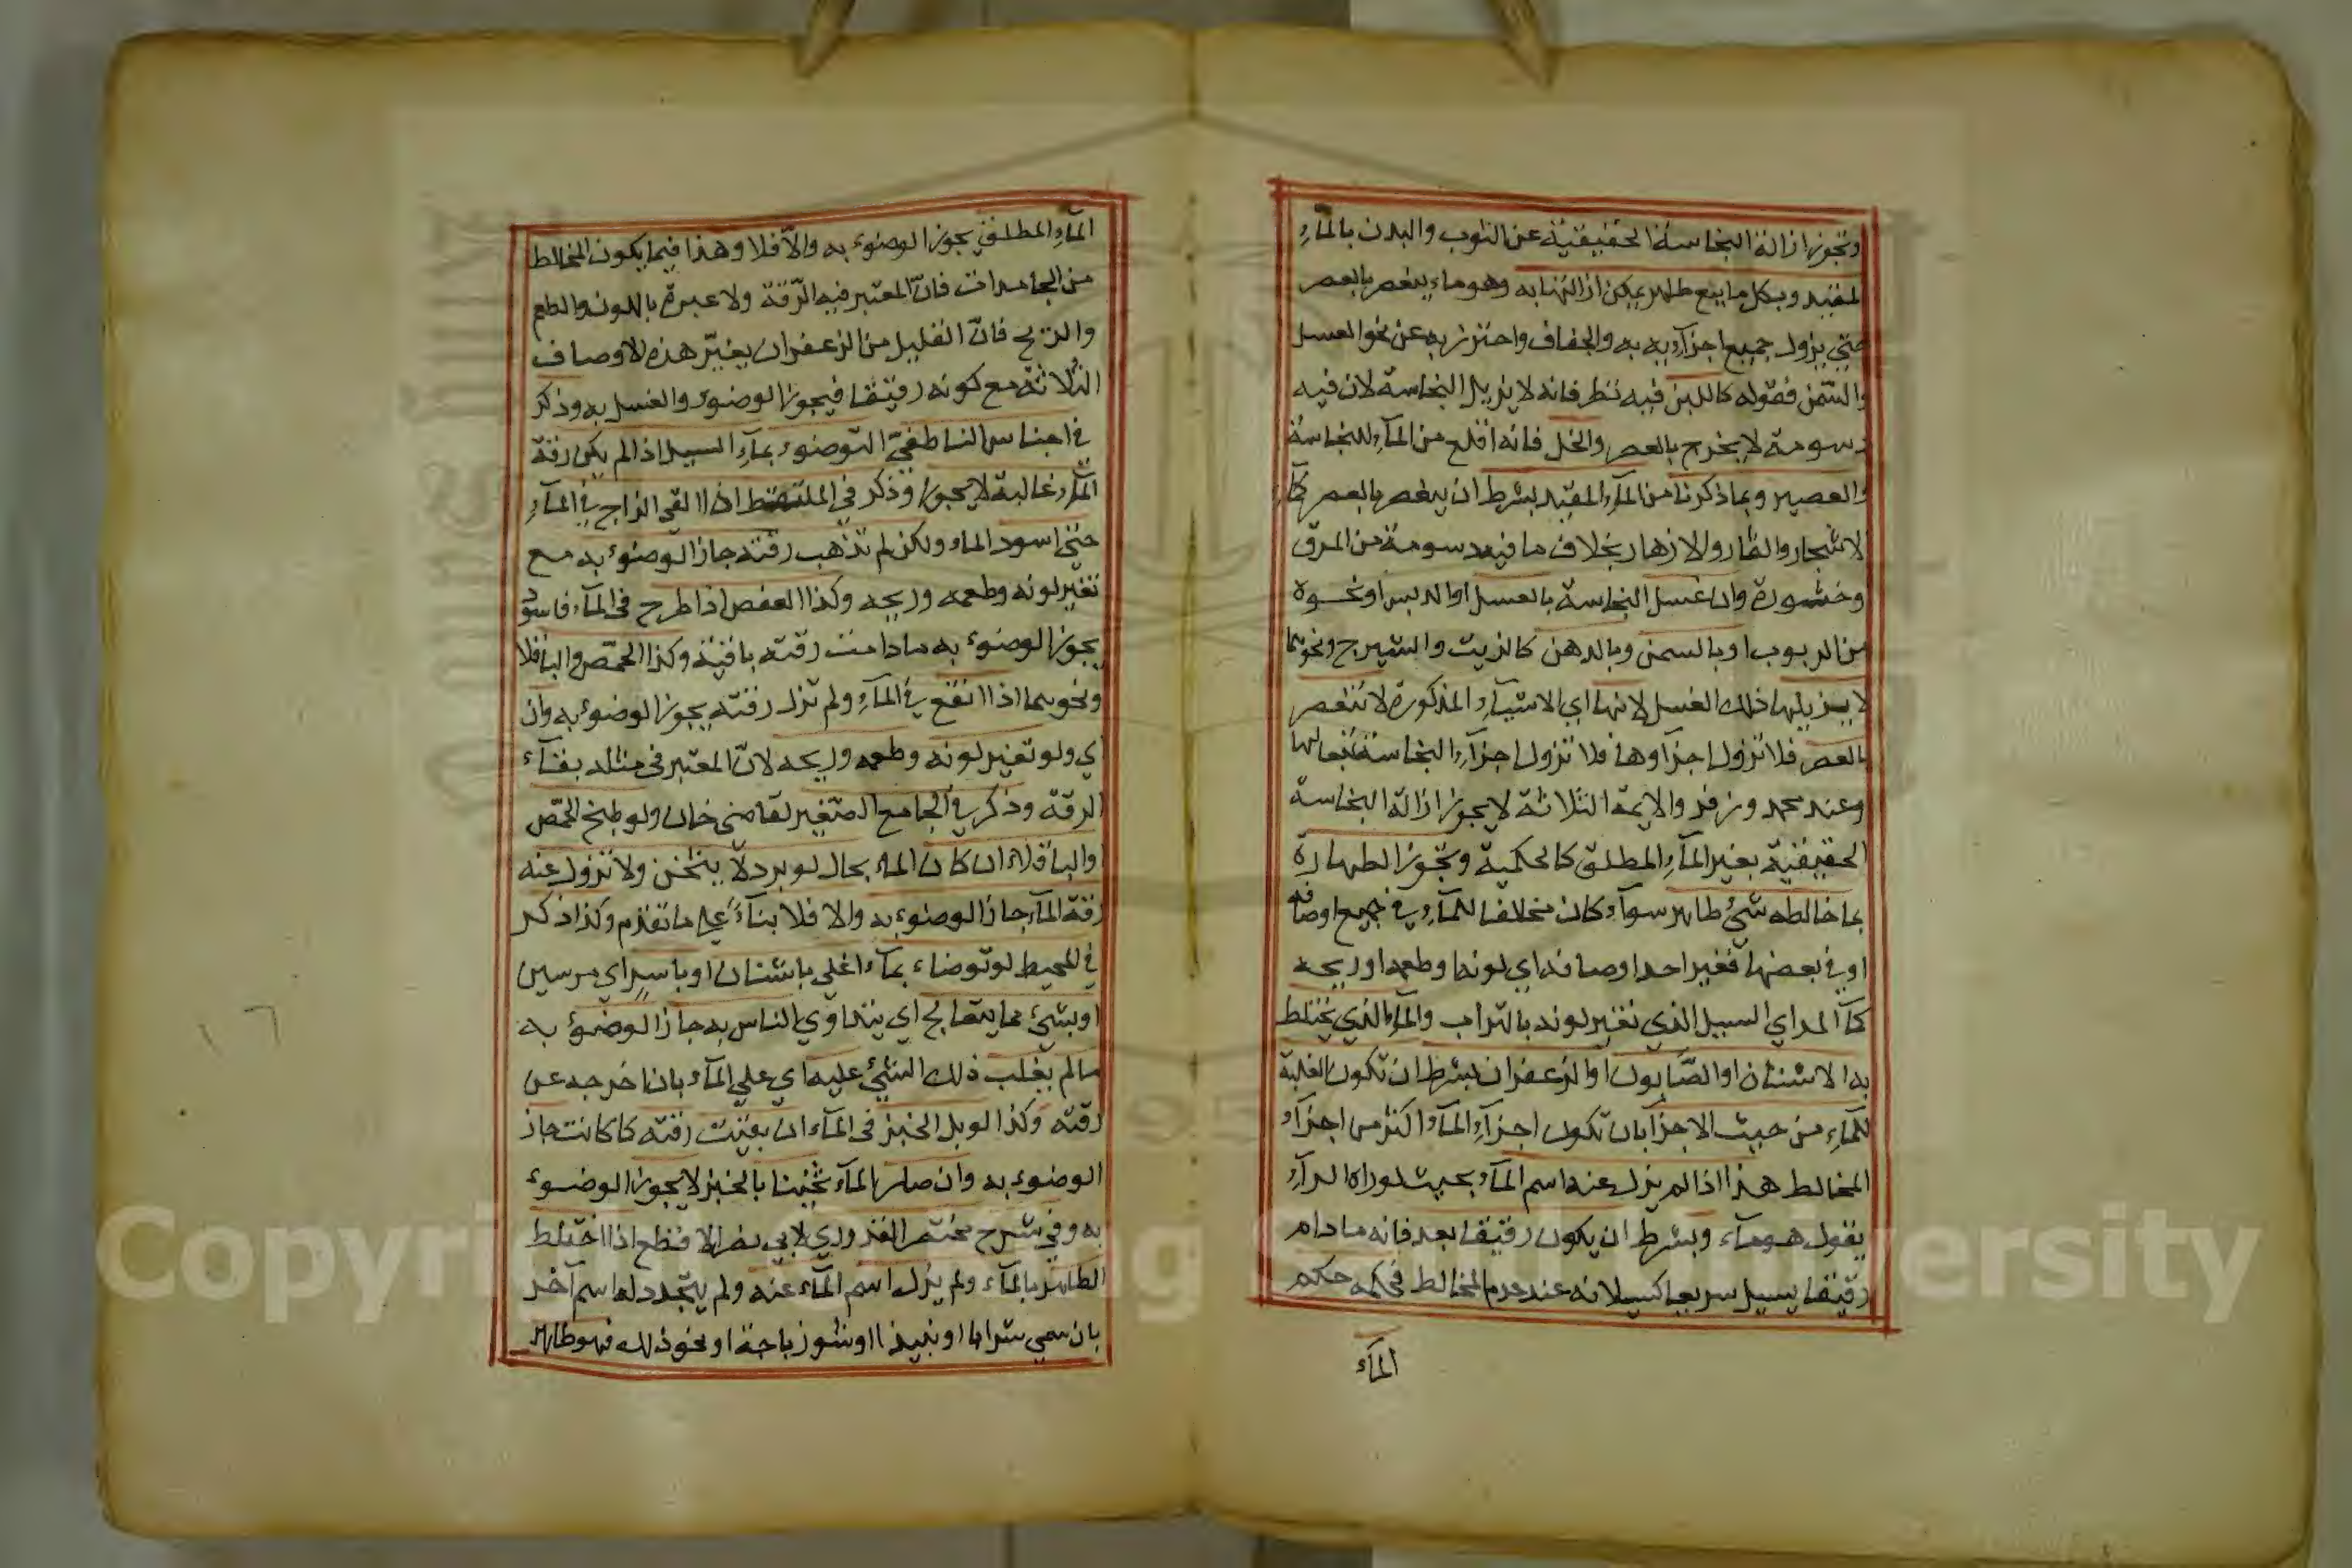 وتجوز ازالة النجاسة الحقيقية عن الثوب والبدن بالمآء
المقيد وبكل مايع طاهر يمكن ازالتها به وهو ماء ينعصر بالعصر
حتي يزول جميع اجزآيه به والجفاف واحترز به عن نحو العسل
والسّمن فقوله كاللبن فيه نظر فانه لا يزيل النجاسة لان فيه
دسومة لا يخرج بالعصر والخل فانه اقلع من المآء للنجاسة
والعصير وبما ذكرنا من المآء المقيد بشرط ان ينعصر بالعصر كمآء
الاشجار والثمار والازهار بخلاف ما فيه دسومة من المرق
وخشورة وان غسل النجاسة بالعسل او الدبس او نحوه
من الربوب او بالسمن وبالدهن كالزيت والشيرج ونحوهما
لا يزيلها ذلك الغسل لانها اي الاشيآء المذكورة لا تنعصر
بالعصر فلا تزول اجزآوها فلا تزول اجزآء النجاسة تبعا لها
وعند محمد وزفر والايمة الثلاثة لا يجوز ازالة النجاسة
الحقيقية بغير المآء المطلق كالحكمية وتجوز الطهارة
بما خالطه شئ طاهر سوآء كان مخالفا للمآء في جميع اوصافه
او في بعضها فغير احد اوصافه اي لونه او طعمه او ريحه
كمآ المد اي السيل الذي تغير لونه بالتراب والمآء الذي يختلط
به الاشنان او الصّابون او الزعفران بشرط ان تكون الغلبة
للمآء من حيث الاجزآ بان تكون اجزآء المآء اكثر من اجزآء
المخالط هذا اذا لم يزل عنه اسم المآء بحيث لو راه الرآء
يقول هو مآء وبشرط ان يكون رقيقا بعد فانه ما دام
رقيقا يسيل سريعا كسيلانه عند عدم المخالط فحكمه حكم
المآء
المآء المطلق يجوز الوضوء به والّا فلا وهذا فيما يكون المخالط
من الجامدات فانّ المعتبر فيه الرّقة ولا عبرة باللون والطعم
والريح فانّ القليل من الزعفران يغيّر هذه الاوصاف
الثلاثة مع كونه رقيقا فيجوز الوضوء والغسل به وذكر
في اجناس الناطفيّ التوضوء بمآء السيل اذا لم يكن رقة
المآء غالبة لا يجوز وذكر في الملتقط اذا القي الزاج في المآء
حتي اسود الماء ولكن لم تذهب رقته جاز الوضوء به مع
تغير لونه وطعمه وريحه وكذا العفص اذا طرح في المآء فاسودّ
يجوز الوضوء به ما دامت رقته باقية وكذا الحمّص والباقلا
ونحوهما اذا انقع في المآء ولم تزل رقته يجوز الوضوء به وان
اي ولو تغير لونه وطعمه وريحه لانّ المعتبر في مثله بقآء
الرقة وذكر في الجامع الصّغير لقاضي خان ولو طبخ الحمّص
والباقلاء ان كان الماء بحال لو برد لا يثخن ولا تزول عنه
رقة المآء جاز الوضوء به والا فلا بنآءً علي ما تقدم وكذا ذكر
في المحيط لو توضاء بمآء اغلي باشنان او باس اي مرسين
او بشئ مما يتعالج اي يتداوي الناس به جاز الوضوء به
مالم يغلب ذلك الشئ عليه اي علي المآء بان اخرجه عن
رقته وكذا لو بل الخبز في المآء ان بقيت رقته كما كانت جاز
الوضوء به وان صار المآء ثخينا بالخبز لا يجوز الوضوء
به وفي شرح مختصر القدوري لابي نصر الاقطع اذا اختلط
الطاهر بالمآء ولم يزل اسم المآء عنه ولم يتجدد له اسم آخر
بان سمي شرابا او نبيذا او شوزباجة او نحو ذلك فهو طاهر
١٦